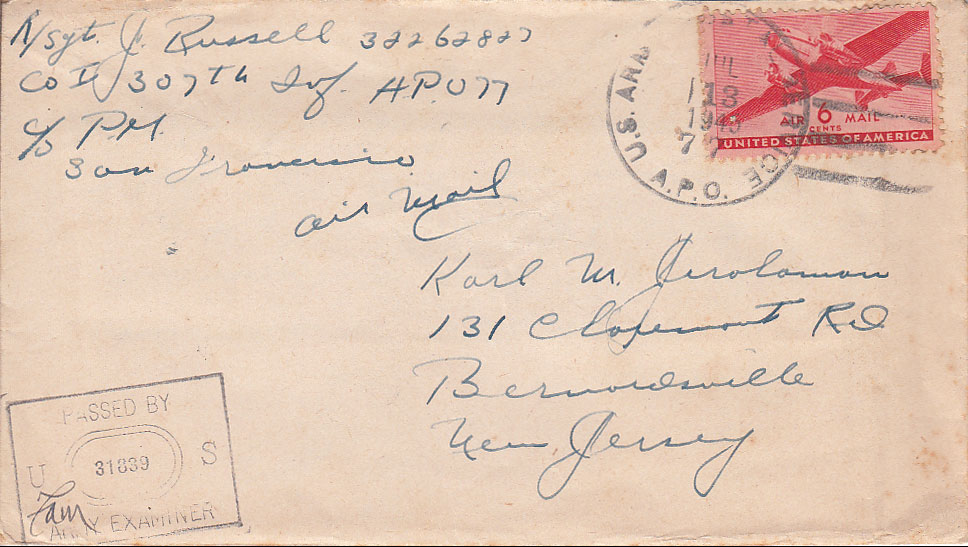 T/Sgt. J. Russell 32262827
Co I 307th Inf. APO 77
c/o PM.
San Francisco
Air Mail
U.S. ARM
A.P.O.
JUL
13
194
AIR 6 MAIL
CENTS
UNITED STATES OF AMERICA
Karl M. Jerolaman
131 Claremont Rd
Bernardsville
New Jersey
PASSED BY
U 31839 S
ARMY EXAMINER